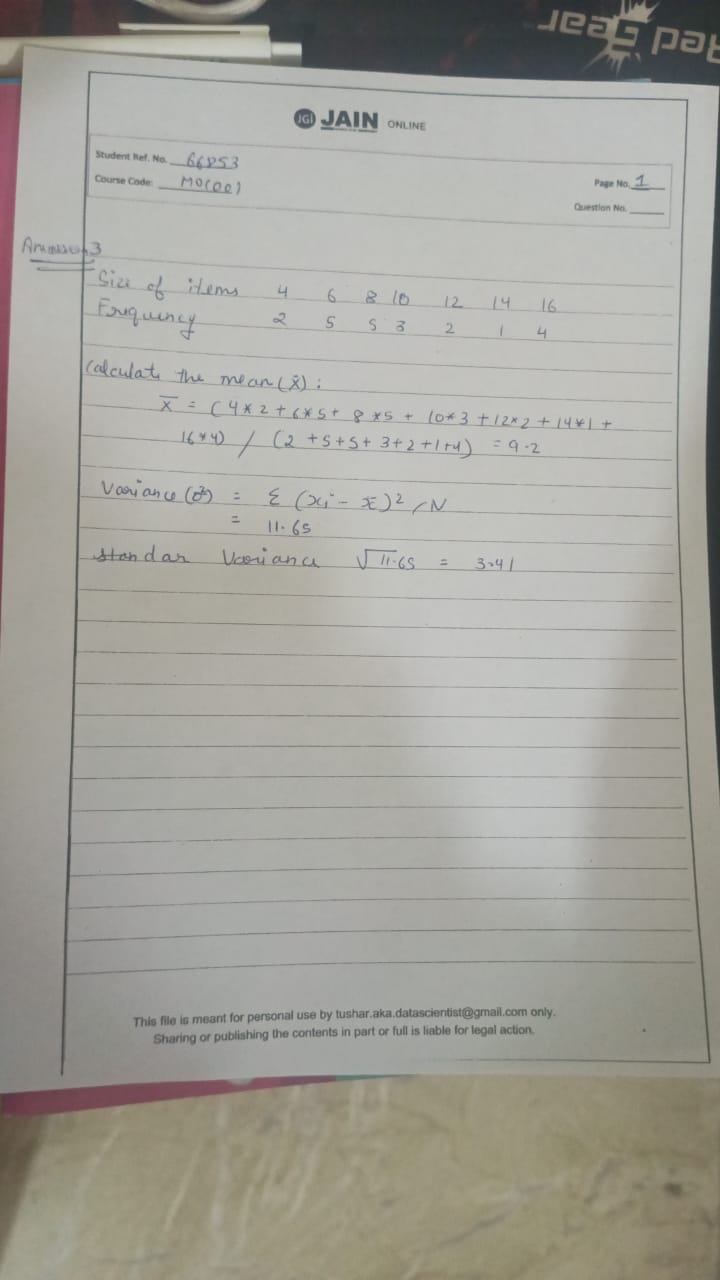 Red Gear
JGI JAIN ONLINE
Student Ref. No. 66853
Course Code:
Page No. 1
Question No.
Answer 3
Size of items 4 6 8 10 12 14 16
Frequency 2 5 5 3 2 1 4
Calculate the mean (x̄) :
x̄ = (4*2 + 6*5 + 8*5 + 10*3 + 12*2 + 14*1 +
16*4) / (2 +5+5+ 3+2+1+4) = 9.2
Variance (σ²) = Σ (xi - x̄)² / N
= 11.65
Standar Variance √11.65 = 3.41
This file is meant for personal use by tushar.aka.datascientist@gmail.com only.
Sharing or publishing the contents in part or full is liable for legal action.